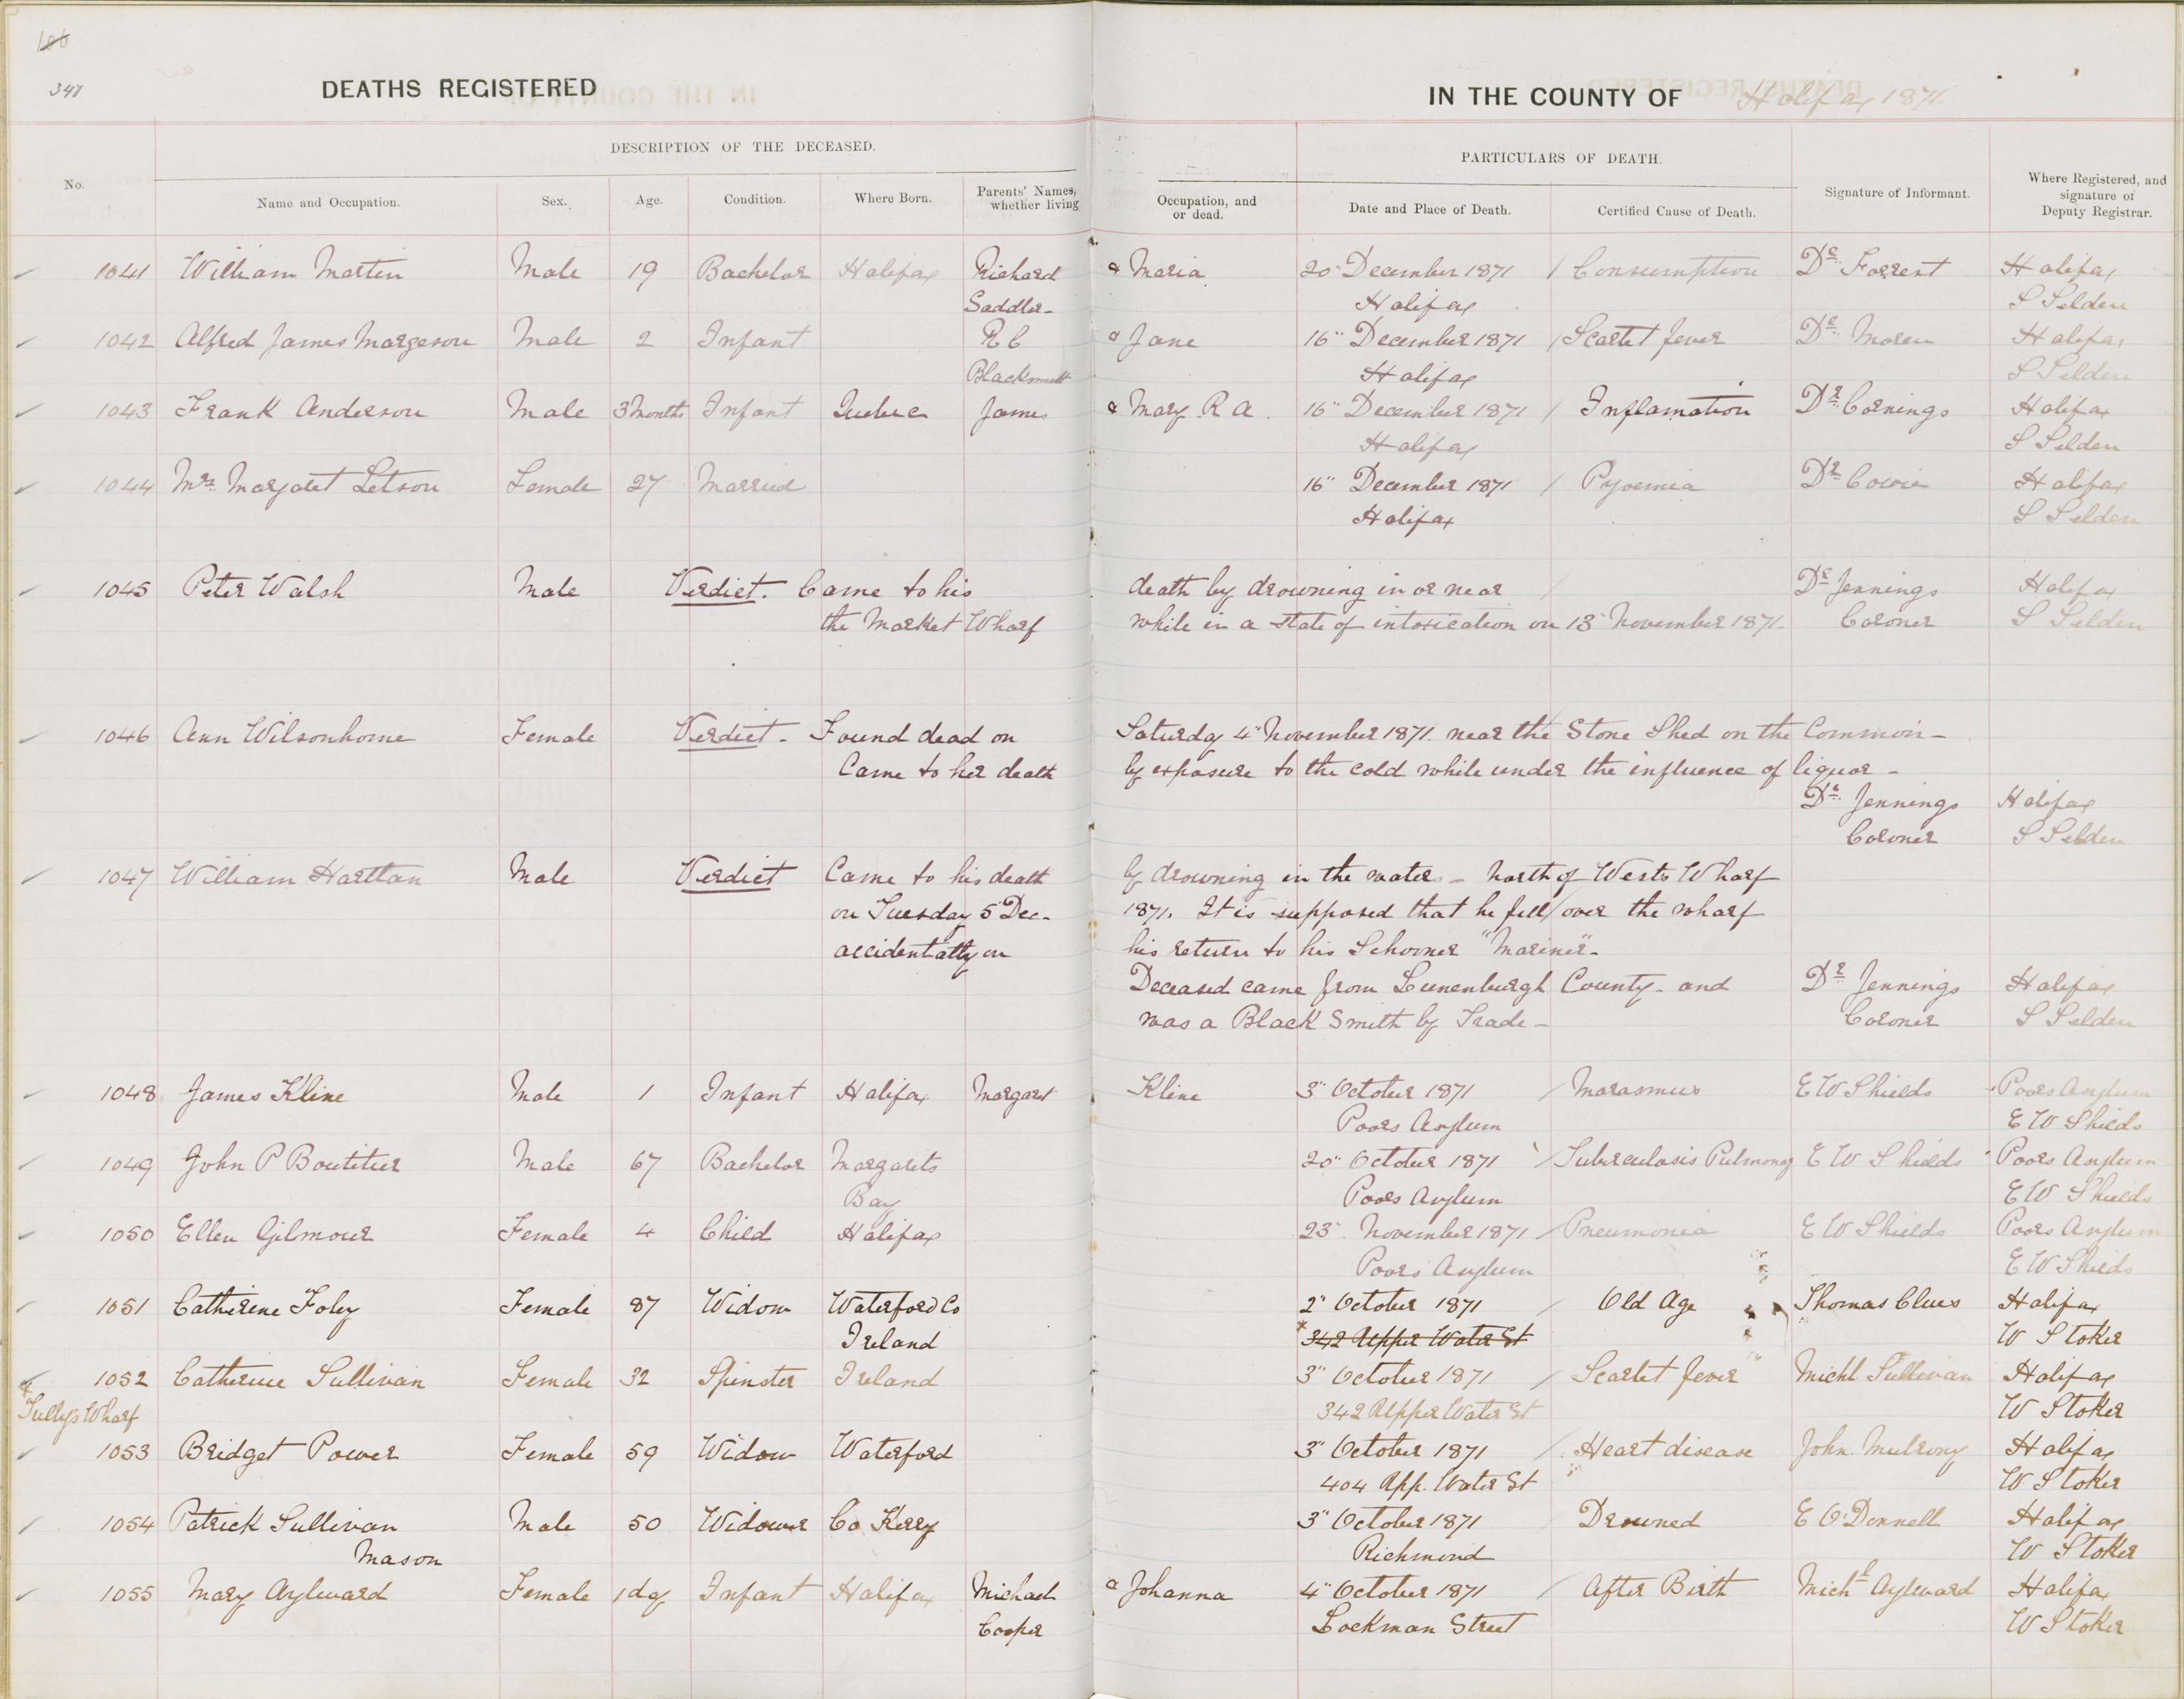 186
347
DEATHS REGISTERED
IN THE COUNTY OF Halifax 1871.
DESCRIPTION OF THE DECEASED.
PARTICULARS OF DEATH.
No. Name and Occupation. Sex. Age. Condition. Where Born. Parents' Names, whether living Occupation, and or dead. Date and Place of Death. Certified Cause of Death. Signature of Informant. Where Registered, and signature of Deputy Registrar.
1041 William Martin Male 19 Bachelor Halifax Richard & Maria 20" December 1871 Consumption Dr. Forrest Halifax
Saddler Halifax S Selden
1042 Alfred James Margeson Male 2 Infant R C & Jane 16" December 1871 Scarlet fever Dr. Moren Halifax
Blacksmith Halifax S Selden
1043 Frank Anderson Male 3 Months Infant Quebec James & Mary R A. 16" December 1871 Inflamation Dr. Cornings Halifax
Halifax S Selden
1044 Mrs. Margaret Letson Female 27 Married 16" December 1871 Pyoemia Dr. Cowie Halifax
Halifax S Selden
1045 Peter Walsh Male Verdict. Came to his death by drowning in or near Dr. Jennings Halifax
the Market Wharf while in a state of intoxication on 13" November 1871- Coroner S Selden
1046 Ann Wilsonhome Female Verdict - Found dead on Saturday 4" November 1871. near the Stone Shed on the Common-
Came to her death by exposure to the cold while under the influence of liquor -
Dr. Jennings Halifax
Coroner S Selden
1047 William Harttan Male Verdict Came to his death by drowning in the water - North of Wests Wharf
on Tuesday 5" Dec- 1871. It is supposed that he fell over the wharf
accidentatly on his return to his Schooner "Mariner"-
Deceased came from Lunenburgh County - and Dr. Jennings Halifax
was a Black Smith by Trade - Coroner S Selden
1048 James Kline Male 1 Infant Halifax Margaret Kline 3" October 1871 Marasmus E W Shields Poors Asylum
Poors Asylum E W Shields
1049 John P Boutitier Male 67 Bachelor Margarets 20" October 1871 Tuberculosis Pulmonay E W Shields Poors Asylum
Bay Poors Asylum E W Shields
1050 Ellen Gilmour Female 4 Child Halifax 23" November 1871 Pneumonia E W Shields Poors Asylum
Poors Asylum E W Shields
1051 Catherine Foley Female 87 Widow Waterford Co 2" October 1871 Old Age Thomas Clues Halifax
Ireland * 342 Upper Water St W Stoker
1052 Catherine Sullivan Female 32 Spinster Ireland 3" October 1871 Scarlet fever Michl. Sullivan Halifax
* Tully's Wharf 342 Upper Water St W Stoker
1053 Bridget Power Female 59 Widow Waterford 3" October 1871 Heart disease John Mulrony Halifax
404 Upp. Water St W Stoker
1054 Patrick Sullivan Male 50 Widower Co Kerry 3" October 1871 Drowned E O'Donnell Halifax
Mason Richmond W Stoker
1055 Mary Aylward Female 1 day Infant Halifax Michael & Johanna 4" October 1871 After Birth Michl Aylward Halifax
Cooper Lockman Street W Stoker